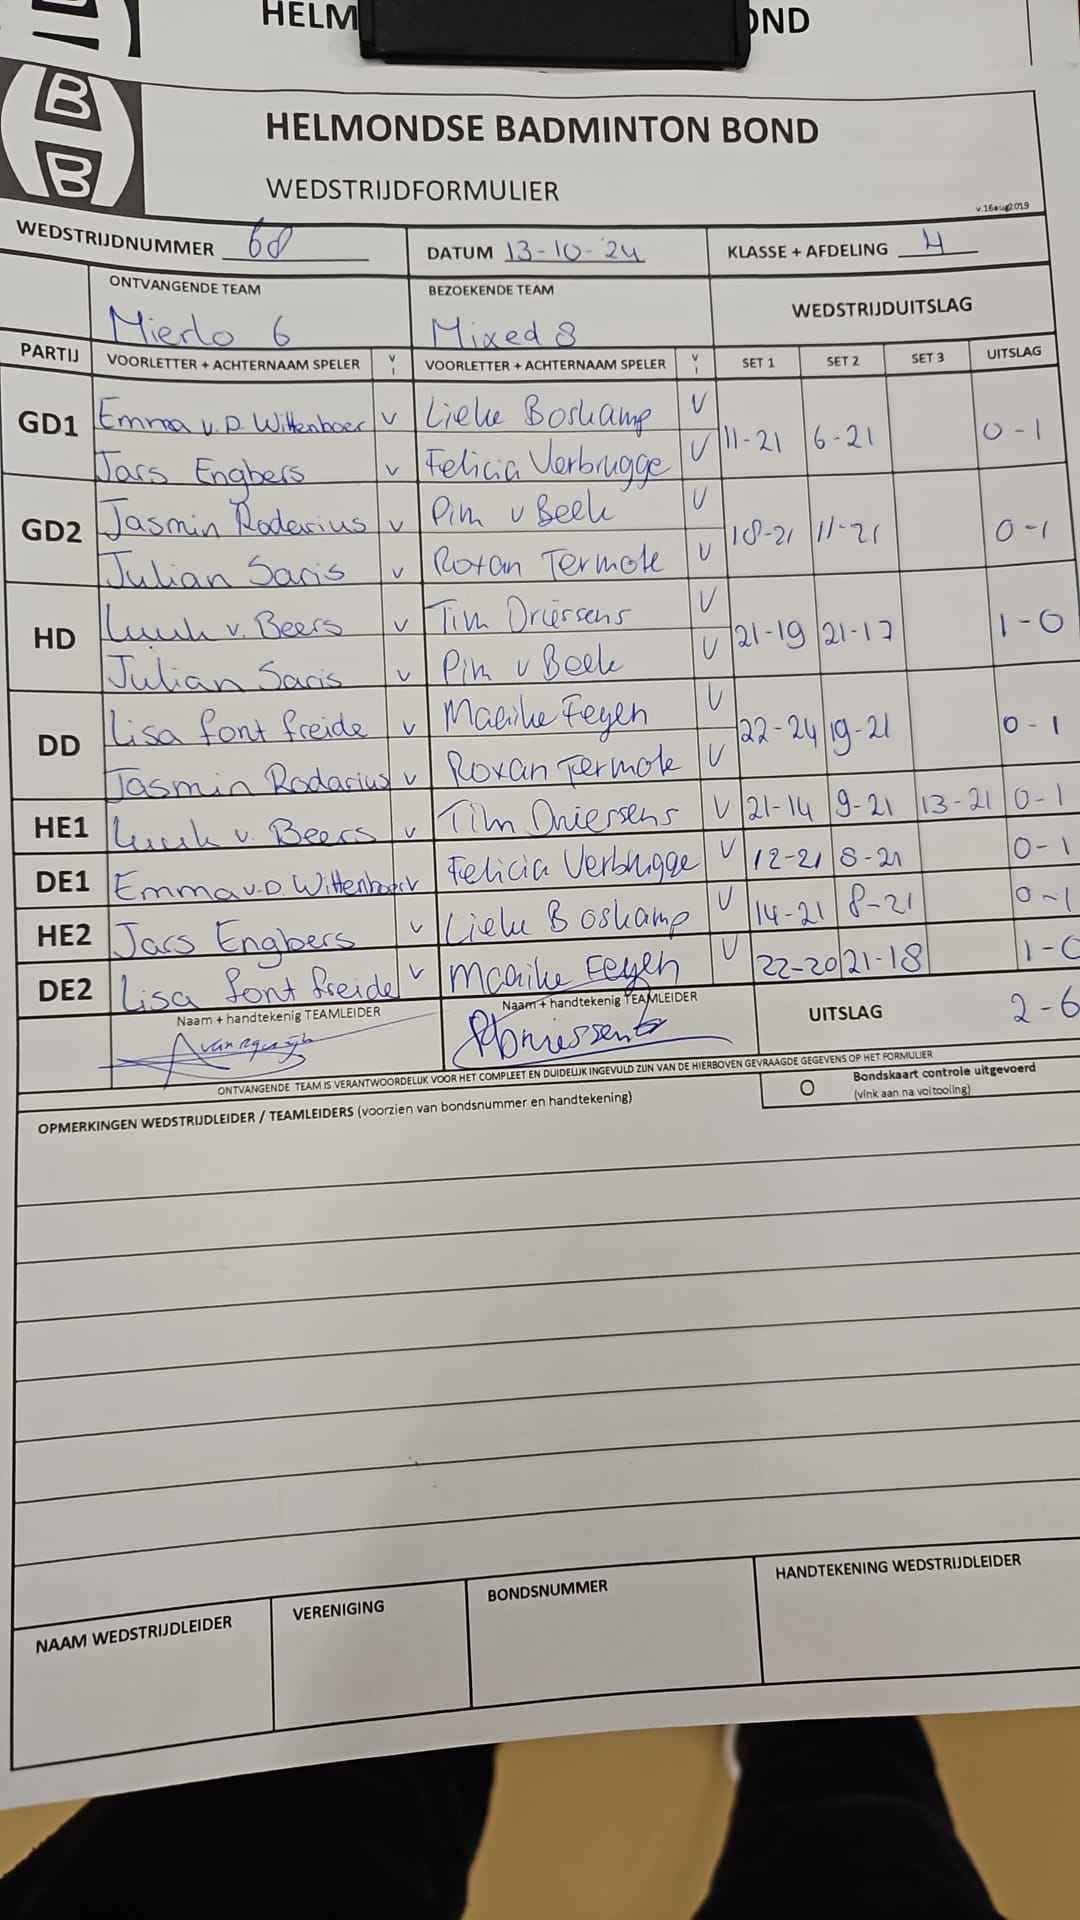 HELM OND
B
B
HELMONDSE BADMINTON BOND
WEDSTRIJDFORMULIER
v.16aug2019
WEDSTRIJDNUMMER 68 DATUM 13-10-'24 KLASSE + AFDELING 4
ONTVANGENDE TEAM BEZOEKENDE TEAM WEDSTRIJDUITSLAG
Mierlo 6 Mixed 8
PARTIJ VOORLETTER + ACHTERNAAM SPELER V I VOORLETTER + ACHTERNAAM SPELER V I SET 1 SET 2 SET 3 UITSLAG
GD1 Emma v.D. Wittenboer v Lieke Boskamp V 11-21 6-21 0-1
Jars Engbers v Felicia Verbrugge V
GD2 Jasmin Rodarius v Pim v Beek V 18-21 11-21 0-1
Julian Saris v Roxan Termote V
HD Luuk v. Beers v Tim Driessens V 21-19 21-17 1-0
Julian Saris v Pim v Beek V
DD Lisa font freide v Maaike Feyen V 22-24 19-21 0-1
Jasmin Rodarius v Roxan Termote V
HE1 Luuk v. Beers v Tim Driessens V 21-14 9-21 13-21 0-1
DE1 Emma v.D. Wittenboer v Felicia Verbrugge V 12-21 8-21 0-1
HE2 Jars Engbers v Lieke Boskamp V 14-21 8-21 0-1
DE2 Lisa font freide v Maaike Feyen V 22-20 21-18 1-0
Naam + handtekenig TEAMLEIDER Naam + handtekenig TEAMLEIDER UITSLAG 2-6
ONTVANGENDE TEAM IS VERANTWOORDELIJK VOOR HET COMPLEET EN DUIDELIJK INGEVULD ZIJN VAN DE HIERBOVEN GEVRAAGDE GEGEVENS OP HET FORMULIER
O Bondskaart controle uitgevoerd
(vink aan na voltooiing)
OPMERKINGEN WEDSTRIJDLEIDER / TEAMLEIDERS (voorzien van bondsnummer en handtekening)
NAAM WEDSTRIJDLEIDER VERENIGING BONDSNUMMER HANDTEKENING WEDSTRIJDLEIDER